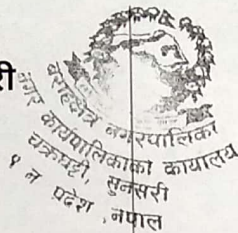 री
बराहक्षेत्र नगरपालिका
नगर कार्यपालिकाको कार्यालय
चक्रघट्टी, सुनसरी
१ नं प्रदेश, नेपाल